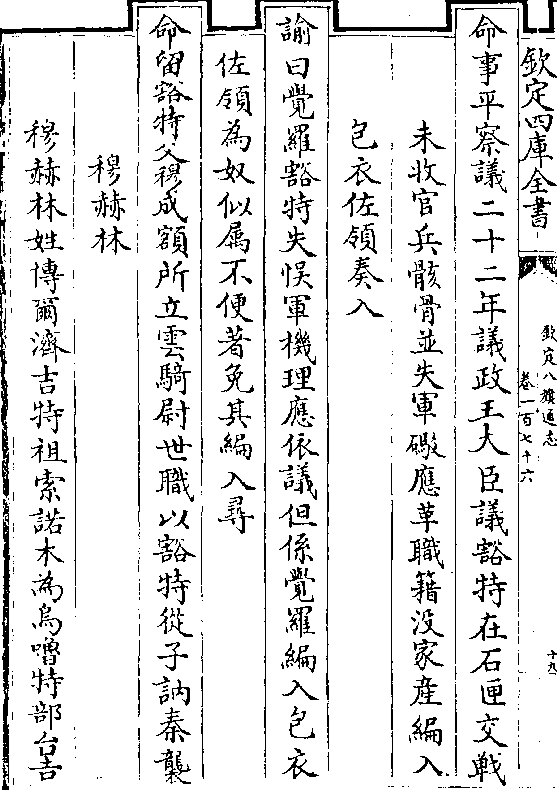 欽定四庫全書
欽定八旗通志
卷一百七十六
十九
命事平察議二十二年議政王大臣議豁特在石匣交戰
未收官兵骸骨並失軍礮應革職籍没家産編入
包衣佐領奏入
諭曰覺羅豁特失悞軍機理應依議但係覺羅編入包衣
佐領為奴似属不便著免其編入尋
命留豁特父穆成額所立雲騎尉世職以豁特從子訥秦襲
穆赫林
穆赫林姓博爾濟吉特祖索諾木為烏嚕特部台吉